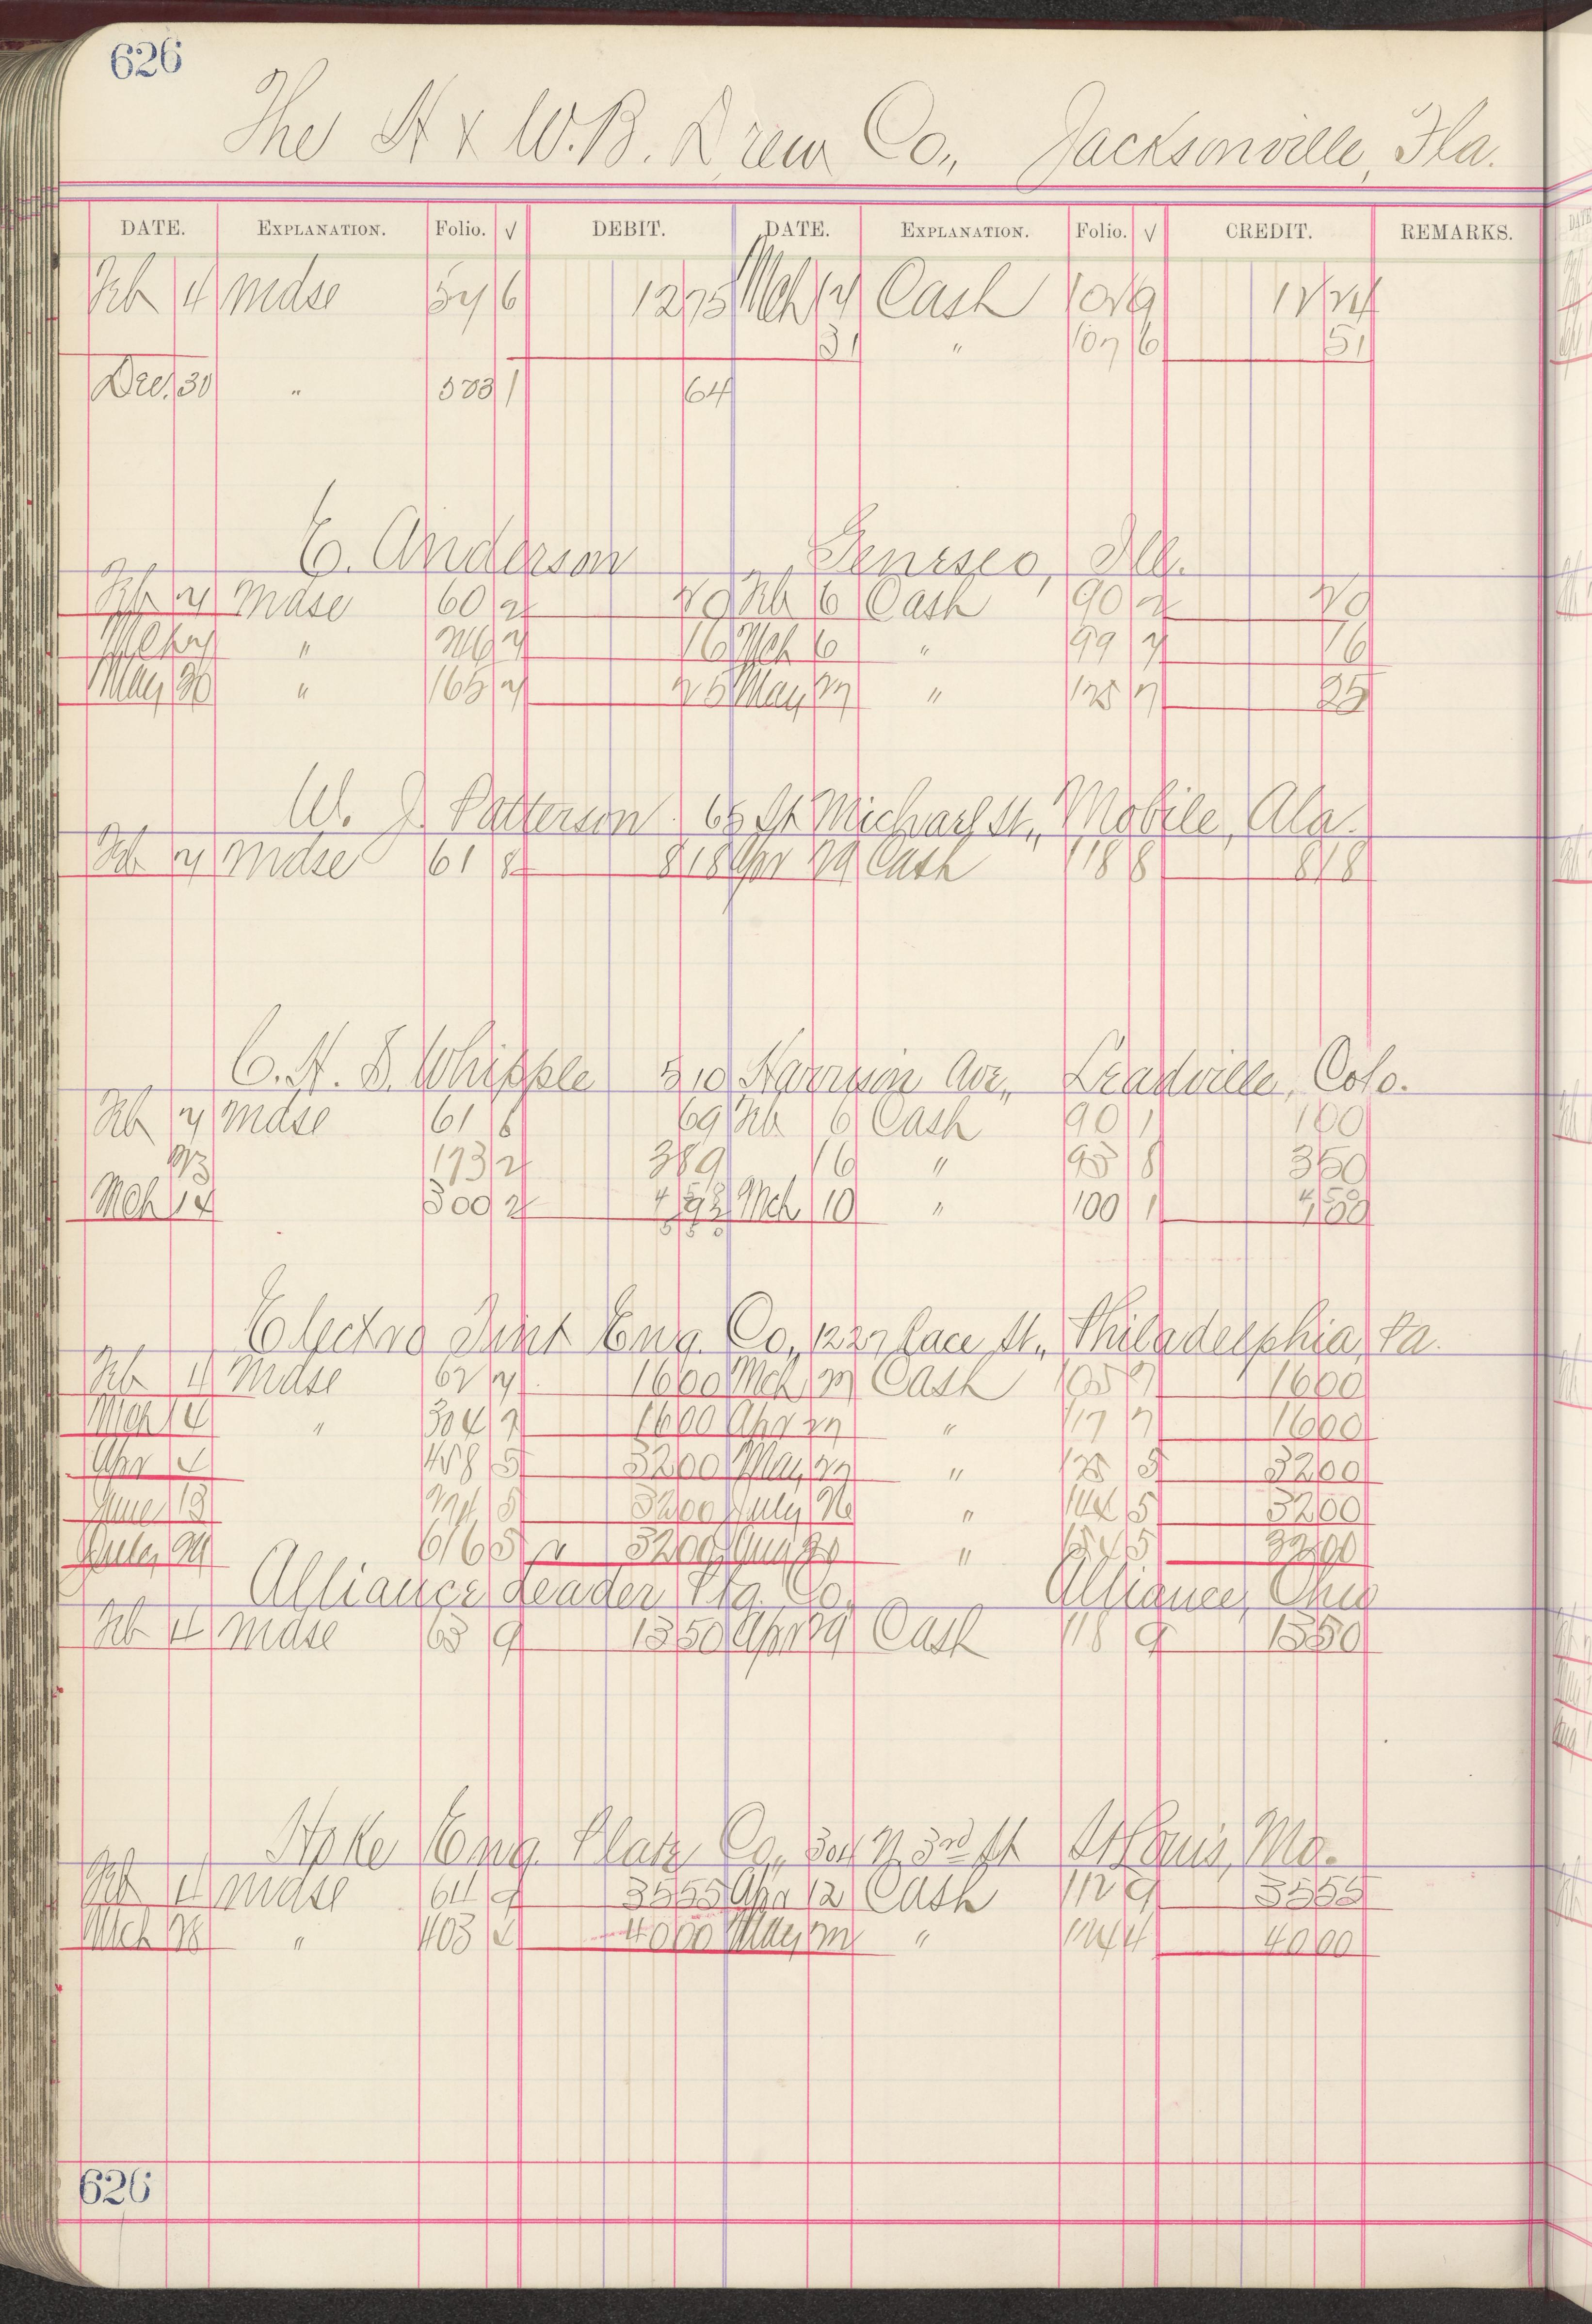 626
The H & W.B. Drew Co., Jacksonville, Fla.
DATE. EXPLANATION. Folio. √ DEBIT. DATE. EXPLANATION. Folio. √ CREDIT. REMARKS.
Feb 4 Mdse 6 1275 Mch Cash 9 1224
31 " 107 6 51
Dec. 30 " 583 1 64
E. Anderson Geneseo, Ill.
Feb Mdse 60 2 20 Feb 6 Cash 90 2 20
Mch " 16 Mch 6 " 99 16
May " 165 25 May " 125 25
W. J. Patterson 65 St Michael St., Mobile, Ala.
Feb Mdse 61 8 818 Apr 29 Cash 118 8 818
C. H. S. Whipple 310 Harrison Ave., Leadville, Colo.
Feb Mdse 61 6 69 Feb 6 Cash 90 1 100
23 173 2 389 16 " 95 8 350
Mch 14 300 2 Mch 10 " 100 1
Electro Tint Eng. Co., 1227 Race St., Philadelphia, Pa.
Feb 4 Mdse 62 1600 Mch Cash 105 1600
Mch 4 " 304 1600 Apr " 117 1600
Apr 4 458 5 3200 May " 125 5 3200
June 13 5 3200 July 26 " 144 5 3200
July 616 5 3200 Aug " 5 3200
Alliance Leader Ptg. Co. Alliance, Ohio
Feb 4 Mdse 63 9 1350 Apr 29 Cash 118 9 1350
Hoke Eng. Plate Co., 304 N 3rd St St Louis, Mo.
Feb 4 Mdse 64 9 3555 Apr 12 Cash 112 9 3555
Mch 28 " 403 4 4000 May " 124 4 4000
626